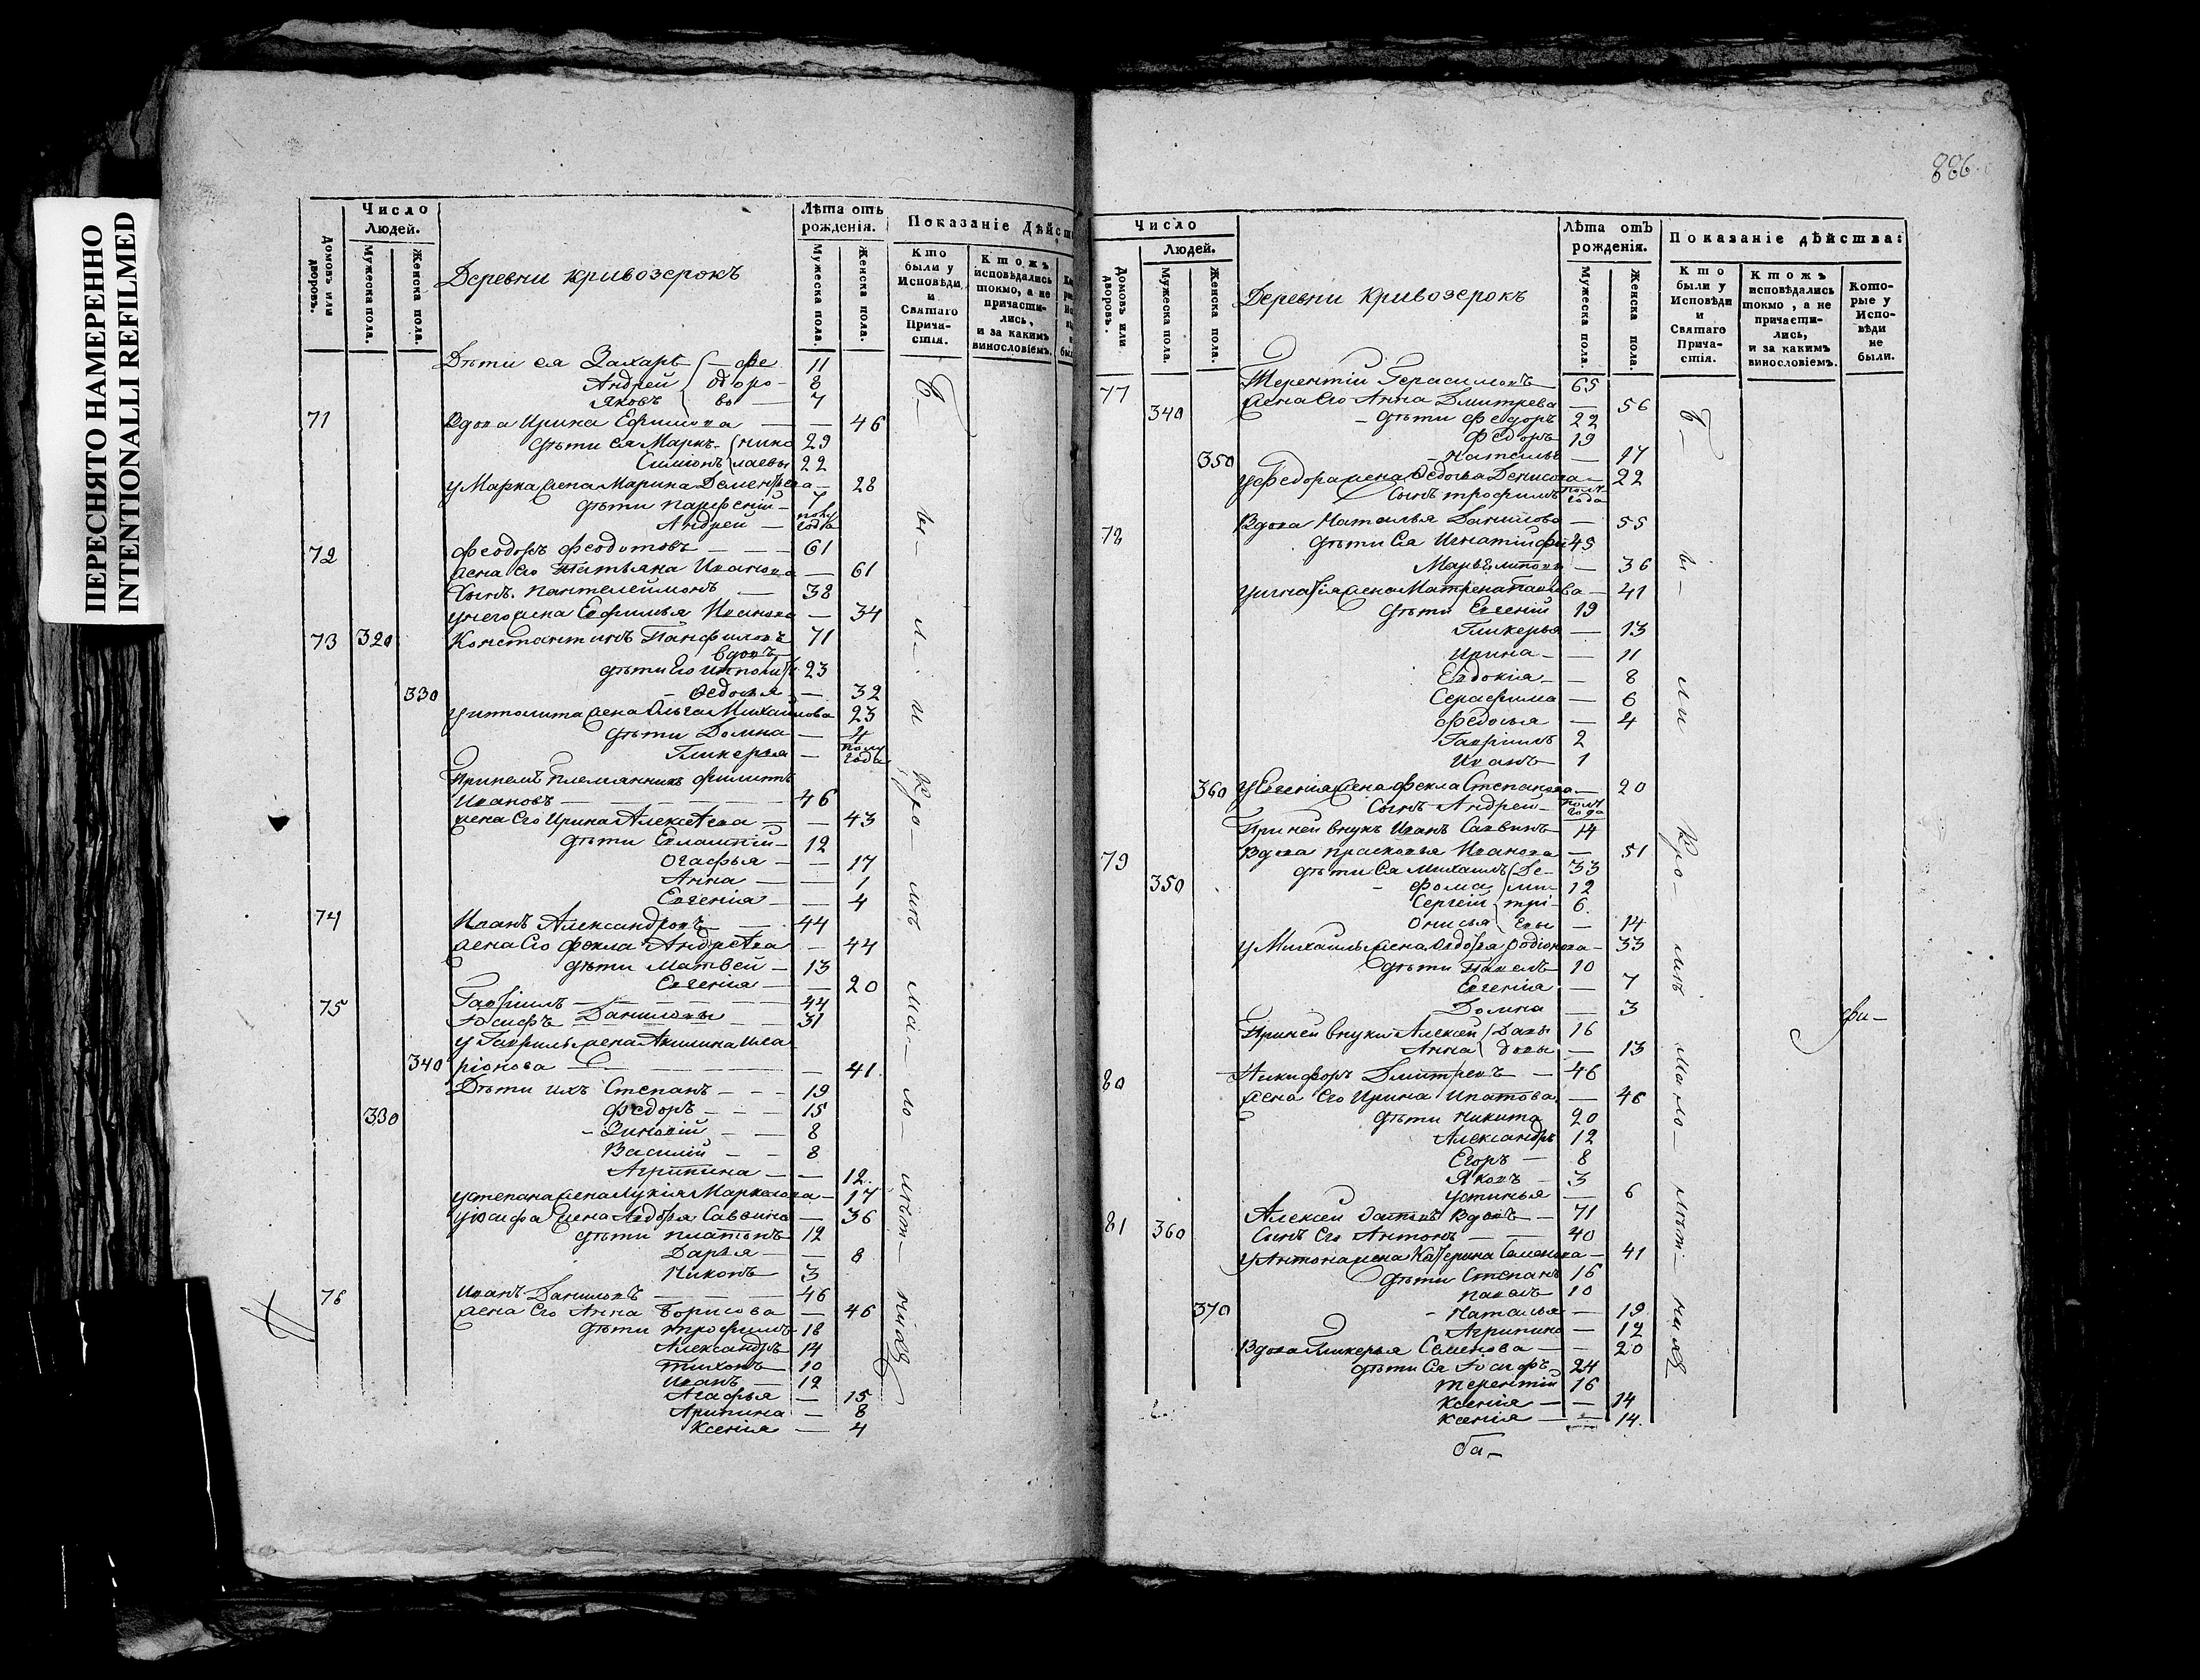 ПЕРЕСНЯТО НАМЕРЕННО
INTENTIONALLI REFILMED
Домовъ или дворовъ.
Число Людей.
Мужеска пола.
Женска пола.
Деревни Кривозерокъ
Лѣта отъ рожденія.
Мужеска пола.
Женска пола.
Показаніе Дѣйст
Кто были у Исповѣди и Святаго Прича-стія.
Ктожъ исповѣдались токмо, а не причасти-лись, и за какимъ винословіемъ.
Дѣти ея Захаръ фе 11
Андрей доро- 8
Яковъ вы 7
71 Вдова Ирина Ефимова — 46
дѣти ея Маркъ нико 29
Симионъ лаевы 22
у Марка жена Марина Дементьева — 28
дѣти Парфеній 7
Андрей — полу года
72 Феодоръ Феодотовъ — 61
жена его Татьяна Иванова — 61
Сынъ Пантелеймонъ 38
у него жена Евфимья Иванова — 34
73 320 Константинъ Панфиловъ 71
вдовъ
дѣти его Иполитъ 23
330 Ѳедосья — 32
у Ипполита жена Ольга Михайлова 23
дѣти Домна — 4
Гликерья — полу года
При немъ племянникъ Филиппъ
Ивановъ — 46
жена его Ирина Алексѣева — 43
дѣти Евлампій — 12
Огафья — 17
Анна — 1
Евгенія — 4
74 Иванъ Александровъ — 44
жена его Фекла Андрѣева — 44
дѣти Матвей — 13
Евгенія — 20
75 Гавріилъ — 44
Іосифъ Даниловы — 31
у Гаврилы жена Акилина Ила
340 ріонова — 41
Дѣти ихъ Степанъ — 19
Федоръ — 15
330 Зиновій — 8
Василій — 8
Агрипина — 12.
у Степана жена Лукія Маркелова — 17
у Іосифа жена Ѳедора Саввина — 36
дѣти Платонъ 12
Дарья — 8
Никонъ 3
76 Иванъ Даниловъ — 46
жена его Анна Борисова — 46
дѣти Трофимъ 18
Александръ 14
Тихонъ 10
Иванъ — 12
Агафья — 15
Арипина — 8
Ксенія — 4
б— ы— л— и Кро— мѣ мал— ло— лѣт— нихъ
886.
Домовъ или дворовъ.
Число Людей.
Мужеска пола.
Женска пола.
Деревни Кривозерокъ
Лѣта отъ рожденія.
Мужеска пола.
Женска пола.
Показаніе дѣйства:
Кто были у Исповѣди и Святаго Прича-стія.
Ктожъ исповѣдались токмо, а не причасти-лись, и за какимъ винословіемъ.
Кото-рые у Испо-вѣди не были.
77 Терентій Герасимовъ 65
340 жена его Анна Дмитрева — 56
дѣти Федоръ 22
Федоръ 19
350 Наталья — 17
у Федора жена Ѳедосья Денисова — 22
Сынъ Трофимъ полъ года
78 Вдова Наталья Данилова — 55
дѣти ея Игнатій фи 45
Марья липовы — 36
у Игнатія жена Матрена Павлова — 41
дѣти Евгеній 19
Гликерья — 13
Ирина — 11
Евдокія — 8
Серафима — 6
Федосья — 4
Гавріилъ 2
Иванъ 1
360 у Евгенія жена Фекла Степанова — 20
Сынъ Андреи полъ года
При ней внукъ Иванъ Саввинъ 14
79 Вдова Прасковья Иванова — 51
дѣти ея Михаилъ Де- 33
350 Фома ми- 12
Сергій трі- 6.
Онисья евы — 14
у Михаилы жена Ѳедора Родіонова — 33
дѣти Павелъ 10
Евгенія — 7
Домна — 3
При ней внуки Алексѣй Давы 16
Анна довы — 13
80 Никифоръ Дмитревъ — 46
жена его Ирина Ипатова. — 46
дѣти Никита 20
Александръ 12
Егоръ — 8
Яковъ — 3
Устинья — 6
81 360 Алексѣй вдовъ — 71
Сынъ его Антонъ — 40
у Антона жена Катерина Семенова — 41
дѣти Степанъ 16
Павелъ 10
370 Наталья — 19
Агрипина — 12
Вдова Гликерья Семенова — 20
дѣти ея Іосифъ 24
Терентій 16
Ксенія — 14
Ксенія — 14.
б— ы— ли Кро— мѣ мало— лѣт— нихъ
фи—
ба—